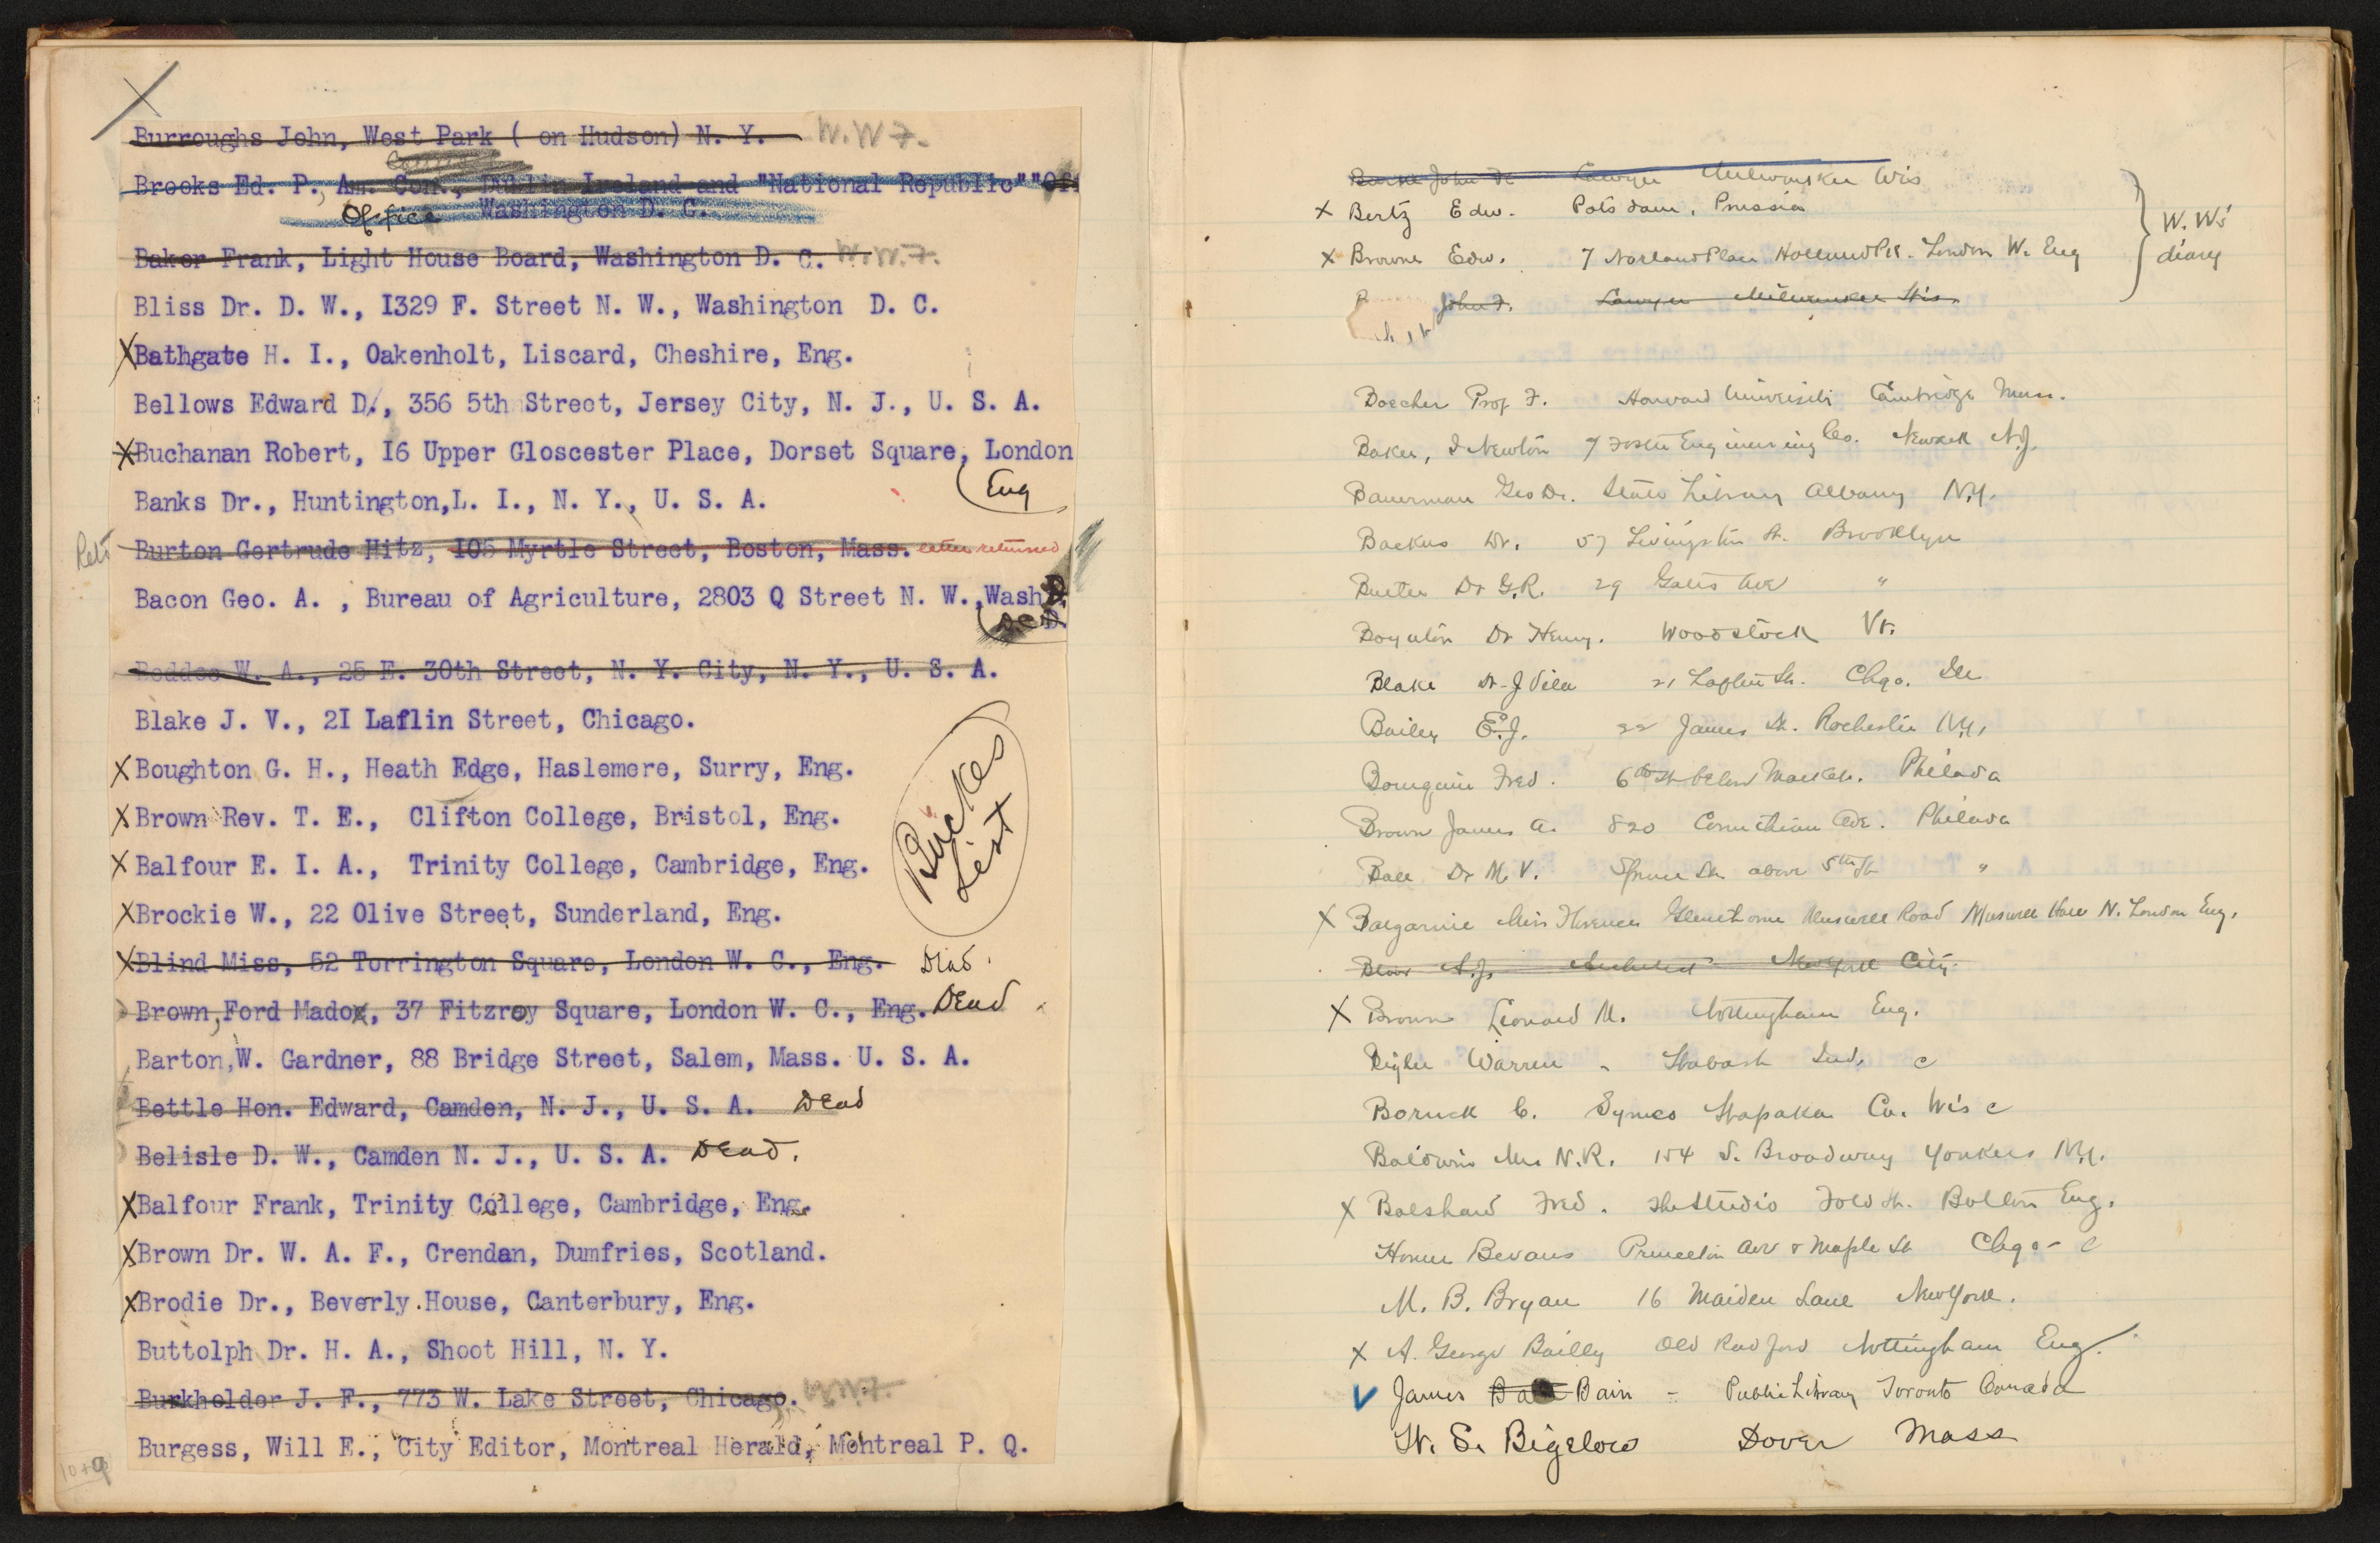 Burroughs John, West Park ( on Hudson) N. Y. W. W F.
Brooks Ed. P., Am. Con., Dublin Ireland and "National Republic" "Off
Office Washington D. C.
Baker Frank, Light House Board, Washington D. C. W. W. F.
Bliss Dr. D. W., I329 F. Street N. W., Washington D. C.
X Bathgate H. I., Oakenholt, Liscard, Cheshire, Eng.
Bellows Edward D., 356 5th Street, Jersey City, N. J., U. S. A.
X Buchanan Robert, I6 Upper Gloscester Place, Dorset Square, London
(Eng
Banks Dr., Huntington,L. I., N. Y., U. S. A.
Burton Gertrude Hitz, I05 Myrtle Street, Boston, Mass. letter returned
Bacon Geo. A. , Bureau of Agriculture, 2803 Q Street N. W.,Wash
Beddoe W. A., 25 E. 30th Street, N. Y. City, N. Y., U. S. A.
Blake J. V., 2I Laflin Street, Chicago.
X Boughton G. H., Heath Edge, Haslemere, Surry, Eng.
X Brown Rev. T. E., Clifton College, Bristol, Eng.
X Balfour E. I. A., Trinity College, Cambridge, Eng.
Buckes
List
X Brockie W., 22 Olive Street, Sunderland, Eng.
X Blind Miss, 52 Torrington Square, London W. C., Eng. Dead.
Brown, Ford Madox, 37 Fitzroy Square, London W. C., Eng. Dead
Barton,W. Gardner, 88 Bridge Street, Salem, Mass. U. S. A.
Bettle Hon. Edward, Camden, N. J., U. S. A. Dead
Belisle D. W., Camden N. J., U. S. A. Dead.
X Balfour Frank, Trinity College, Cambridge, Eng.
X Brown Dr. W. A. F., Crendan, Dumfries, Scotland.
X Brodie Dr., Beverly House, Canterbury, Eng.
Buttolph Dr. H. A., Shoot Hill, N. Y.
Burkholder J. F., 773 W. Lake Street, Chicago. W.W.F.
Burgess, Will E., City Editor, Montreal Herald, Montreal P. Q.
John Lawyer Milwaukee Wis
X Bertz Edw. Potsdam, Prussia
X Browne Edw. 7 Norland Place Holland Pk. London W. Eng
W. W's
diary
John F. Lawyer Milwaukee Wis.
Boecher Prof F. Harvard University Cambridge Mass.
Baker, I Newton 7 Foster Engineering Co. Newark N.J.
Bauerman Geo Dr. State Library Albany N.Y.
Backus Dr. 57 Livingston St. Brooklyn
Butler Dr G.R. 29 Gates Ave "
Boynton Dr Henry. Woodstock Vt.
Blake Dr. J Vila 21 Laflin St. Chgo. Ill
Bailey E.J. 22 James St. Rochester N.Y.
Bourquin Fred. 6th St below Market. Philada
Brown James A. 820 Corinthian Ave. Philada
Ball Dr M. V. Spruce St above 5th St "
X Balgarnie Miss Florence Glenthorne Muswell Road Muswell Hill N. London Eng.
Bloor A.J. Architect New York City
X Brown Leonard M. Nottingham Eng.
Bigler Warren - Wabash Ind. c
Boruck C. Symco Wapaka Co. Wis c
Baldwin Mrs N.R. 154 S. Broadway Yonkers N.Y.
X Balshaw Fred. The Studio Fold St. Bolton Eng.
Homer Bevans Princeton Ave & Maple St Chgo - c
M. B. Bryan 16 Maiden Lane New York.
X A. George Bailly Old Radford Nottingham Eng.
James Bain - Public Library Toronto Canada
W. S. Bigelow Dover Mass